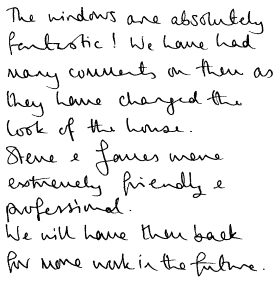 The windows are absolutely
fantastic! We have had
many comments on them as
they have changed the
look of the house.
Steve & James were
extremely friendly &
professional.
We will have them back
for more work in the future.